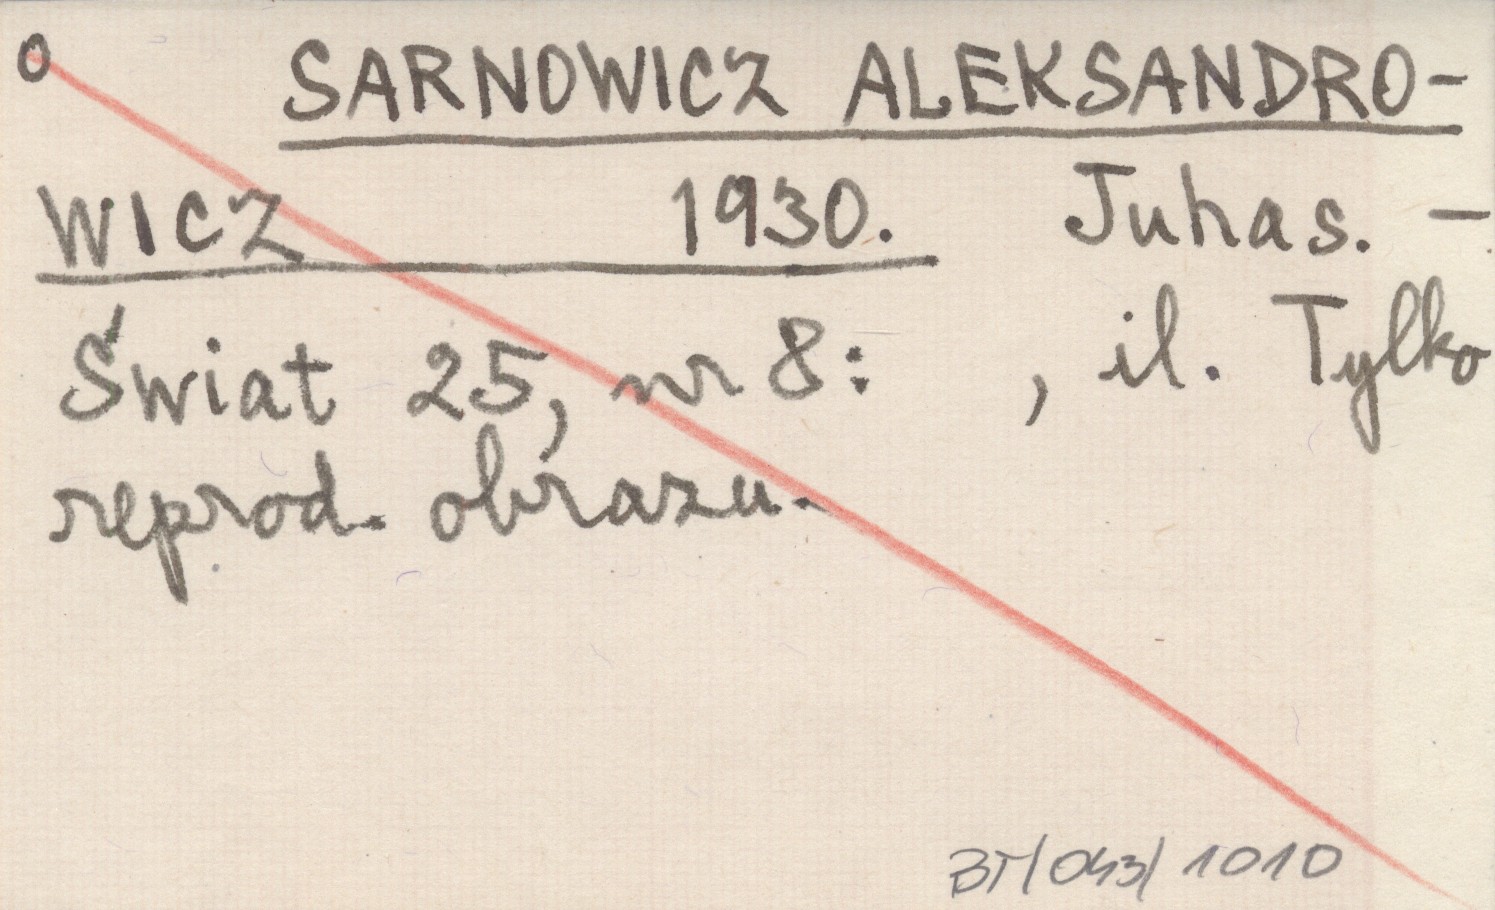 O SARNOWICZ ALEKSANDRO-
WICZ 1930. Juhas. -
Świat 25, nr 8: , il. Tylko
reprod. obrazu.
BT/043/1010